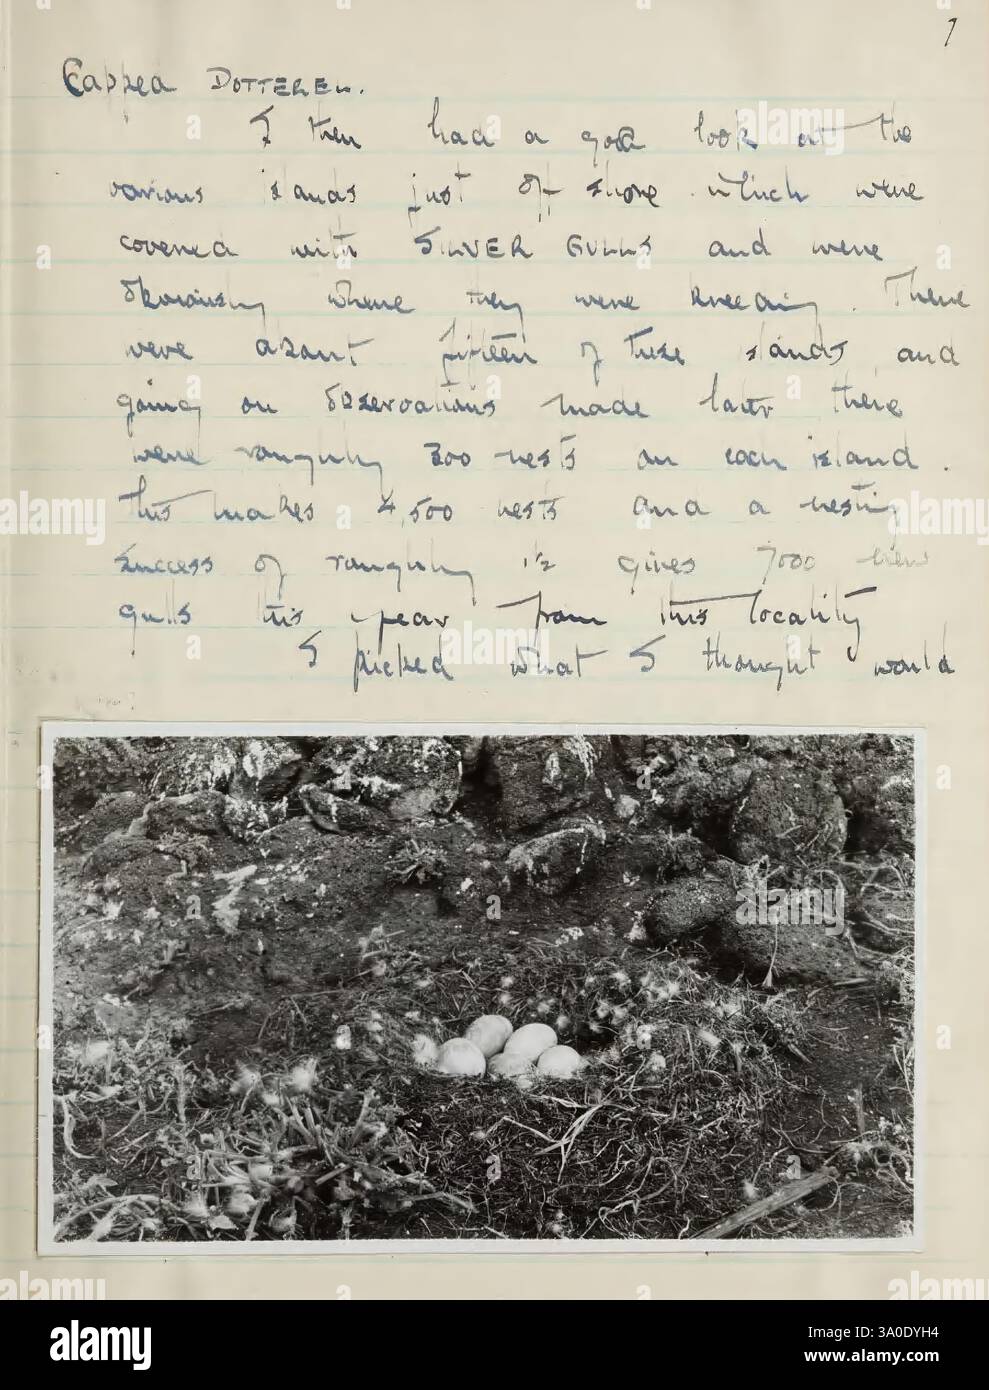 7
Capped DOTTEREL.
I then had a good look at the
various islands just off shore which were
covered with SILVER GULLS and were
obviously where they were breeding. There
were about fifteen of these islands and
going on observations made later there
were roughly 300 nests on each island.
this makes 4,500 nests and a nesting
success of roughly 1½ gives 7000 new
gulls this year from this locality
I picked what I thought would
alamy
Image ID: 3A0DYH4
www.alamy.com